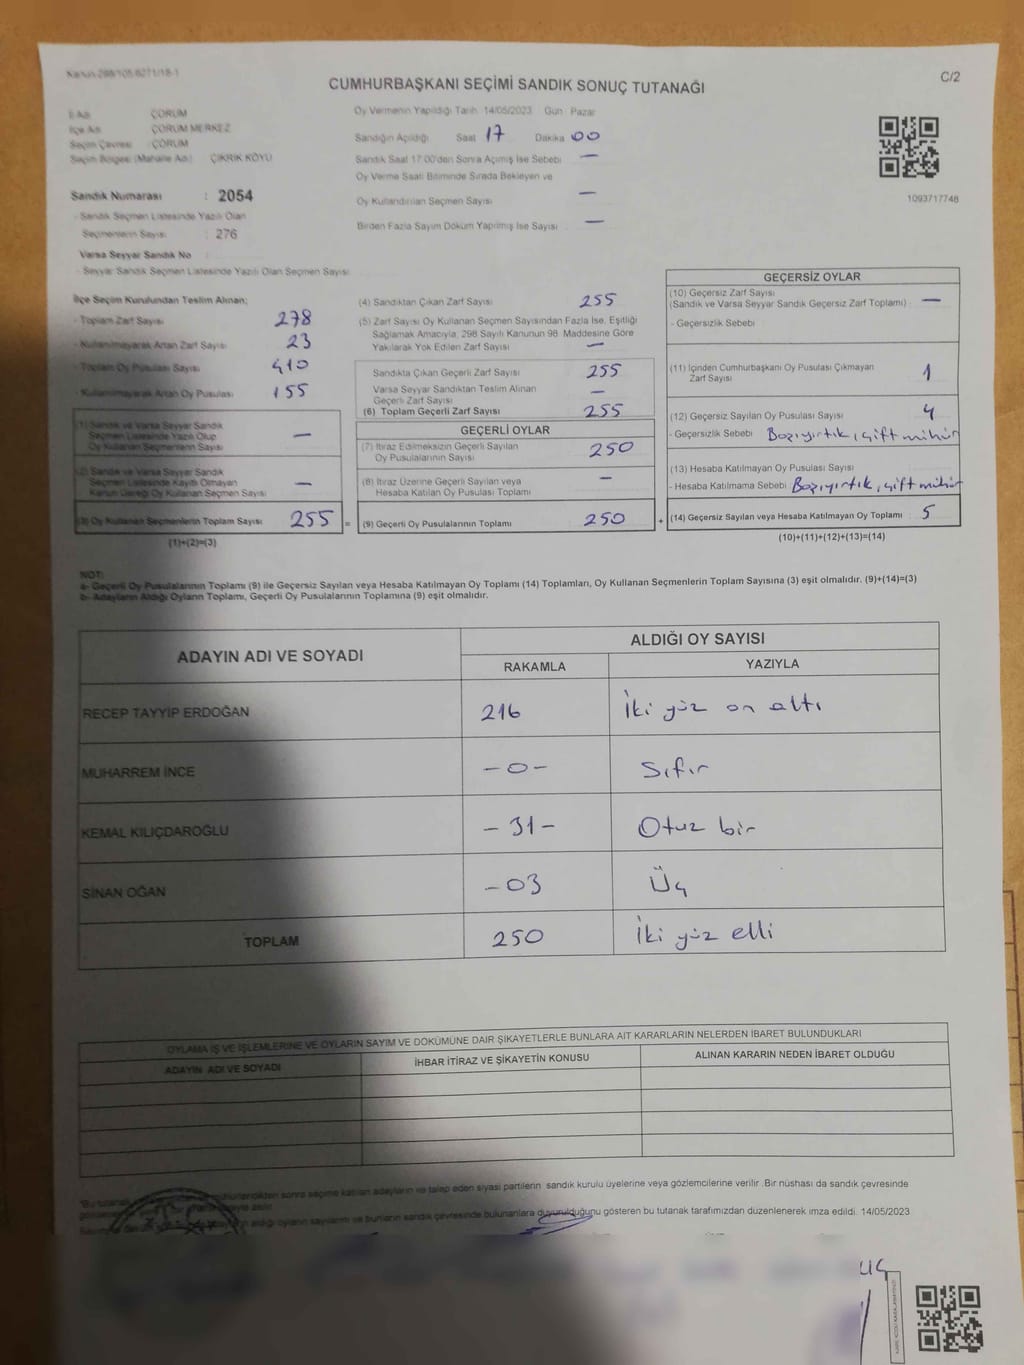 Kanun 298/105 6271/18-1
C/2
CUMHURBAŞKANI SEÇİMİ SANDIK SONUÇ TUTANAĞI
İl Adı ÇORUM
İlçe Adı ÇORUM MERKEZ
Seçim Çevresi ÇORUM
Seçim Bölgesi (Mahalle Adı) ÇIKRIK KÖYÜ
Sandık Numarası : 2054
- Sandık Seçmen Listesinde Yazılı Olan
Seçmenlerin Sayısı : 276
Varsa Seyyar Sandık No
- Seyyar Sandık Seçmen Listesinde Yazılı Olan Seçmen Sayısı
Oy Vermenin Yapıldığı Tarih 14/05/2023 Gün Pazar
Sandığın Açıldığı Saat 17 Dakika 00
Sandık Saat 17:00'den Sonra Açılmış İse Sebebi —
Oy Verme Saati Bitiminde Sırada Bekleyen ve
Oy Kullandırılan Seçmen Sayısı —
Birden Fazla Sayım Döküm Yapılmış İse Sayısı —
1093717748
İlçe Seçim Kurulundan Teslim Alınan;
- Toplam Zarf Sayısı 278
- Kullanılmayarak Artan Zarf Sayısı 23
- Toplam Oy Pusulası Sayısı 410
- Kullanılmayarak Artan Oy Pusulası 155
(1) Sandık ve Varsa Seyyar Sandık
Seçmen Listesinde Yazılı Olup
Oy Kullanan Seçmenlerin Sayısı —
(2) Sandık ve Varsa Seyyar Sandık
Seçmen Listesinde Kaydı Olmayan
Kanun Gereği Oy Kullanan Seçmen Sayısı —
(3) Oy Kullanan Seçmenlerin Toplam Sayısı 255 =
(1)+(2)=(3)
(4) Sandıktan Çıkan Zarf Sayısı 255
(5) Zarf Sayısı Oy Kullanan Seçmen Sayısından Fazla İse, Eşitliği
Sağlamak Amacıyla, 298 Sayılı Kanunun 98. Maddesine Göre
Yakılarak Yok Edilen Zarf Sayısı —
Sandıkta Çıkan Geçerli Zarf Sayısı 255
Varsa Seyyar Sandıktan Teslim Alınan
Geçerli Zarf Sayısı —
(6) Toplam Geçerli Zarf Sayısı 255
GEÇERLİ OYLAR
(7) İtiraz Edilmeksizin Geçerli Sayılan
Oy Pusulalarının Sayısı 250
(8) İtiraz Üzerine Geçerli Sayılan veya
Hesaba Katılan Oy Pusulası Toplamı —
(9) Geçerli Oy Pusulalarının Toplamı 250 +
GEÇERSİZ OYLAR
(10) Geçersiz Zarf Sayısı
(Sandık ve Varsa Seyyar Sandık Geçersiz Zarf Toplamı) —
- Geçersizlik Sebebi
(11) İçinden Cumhurbaşkanı Oy Pusulası Çıkmayan
Zarf Sayısı 1
(12) Geçersiz Sayılan Oy Pusulası Sayısı 4
- Geçersizlik Sebebi çift mühür
(13) Hesaba Katılmayan Oy Pusulası Sayısı
- Hesaba Katılmama Sebebi çift mühür
(14) Geçersiz Sayılan veya Hesaba Katılmayan Oy Toplamı 5
(10)+(11)+(12)+(13)=(14)
NOT:
a- Geçerli Oy Pusulalarının Toplamı (9) ile Geçersiz Sayılan veya Hesaba Katılmayan Oy Toplamı (14) Toplamları, Oy Kullanan Seçmenlerin Toplam Sayısına (3) eşit olmalıdır. (9)+(14)=(3)
b- Adayların Aldığı Oyların Toplamı, Geçerli Oy Pusulalarının Toplamına (9) eşit olmalıdır.
ADAYIN ADI VE SOYADI ALDIĞI OY SAYISI
RAKAMLA YAZIYLA
RECEP TAYYİP ERDOĞAN 216 İki yüz on altı
MUHARREM İNCE -0- Sıfır
KEMAL KILIÇDAROĞLU -31- Otuz bir
SİNAN OĞAN -03 Üç
TOPLAM 250 İki yüz elli
OYLAMA İŞ VE İŞLEMLERİNE VE OYLARIN SAYIM VE DÖKÜMÜNE DAİR ŞİKAYETLERLE BUNLARA AİT KARARLARIN NELERDEN İBARET BULUNDUKLARI
ADAYIN ADI VE SOYADI İHBAR İTİRAZ VE ŞİKAYETİN KONUSU ALINAN KARARIN NEDEN İBARET OLDUĞU
sonra seçime katılan adayların ve talep eden siyasi partilerin sandık kurulu üyelerine veya gözlemcilerine verilir. Bir nüshası da sandık çevresinde
aldığı oyların sayılarını ve bunların sandık çevresinde bulunanlara duyurulduğunu gösteren bu tutanak tarafımızdan düzenlenerek imza edildi. 14/05/2023